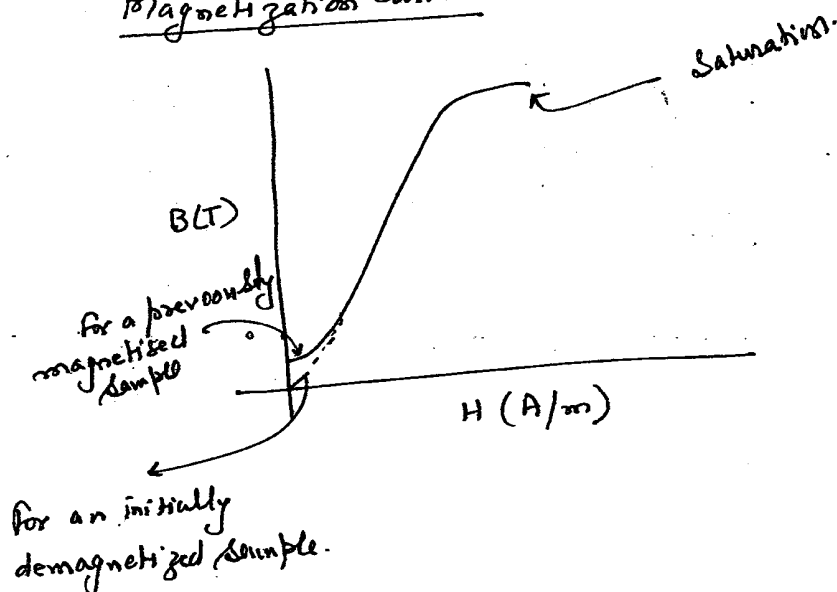 Magnetization
Saturation.
B(T)
for a previously
magnetised
sample
H (A/m)
for an initially
demagnetized sample.